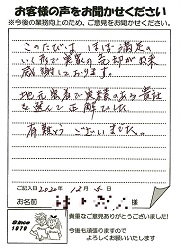 お客様の声をお聞かせください
※今後の業務向上のため、ご意見をお聞かせください。
このたびは、ほぼ満足の
いく形で実家の売却が出来
感謝しております。
地元業者で実績のある貴社
を選んで正解でした
有難うございました。
ご記入日 2020年 12月 5日
お名前 様
Since
1979
貴重なご意見ありがとうございました!
今後も頑張りますので
よろしくお願いいたします